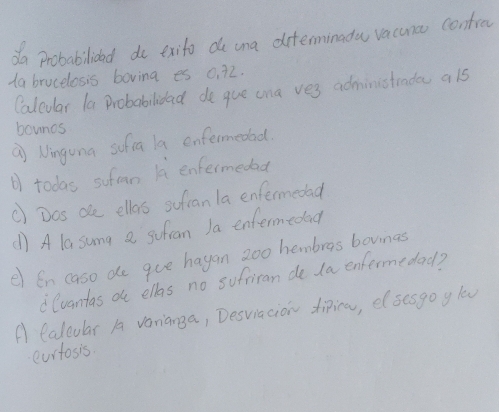 La Probabilidad de exito de una determinada vacuna contra
la brucelosis bovina es 0,72.
Calcular la Probabilidad de que una vez administrada a 15
bovinos
a) Ninguna sufra la enfermedad.
b) todas sufran la enfermedad
c) Dos de ellas sufran la enfermedad
d) A la suma 2 sufran la enfermedad
e) En caso de que hayan 200 hembras bovinas
¿Cuantas de ellas no sufriran de la enfermedad?
f) Calcular la varianza, Desviación tipica, el sesgo y la
curtosis.